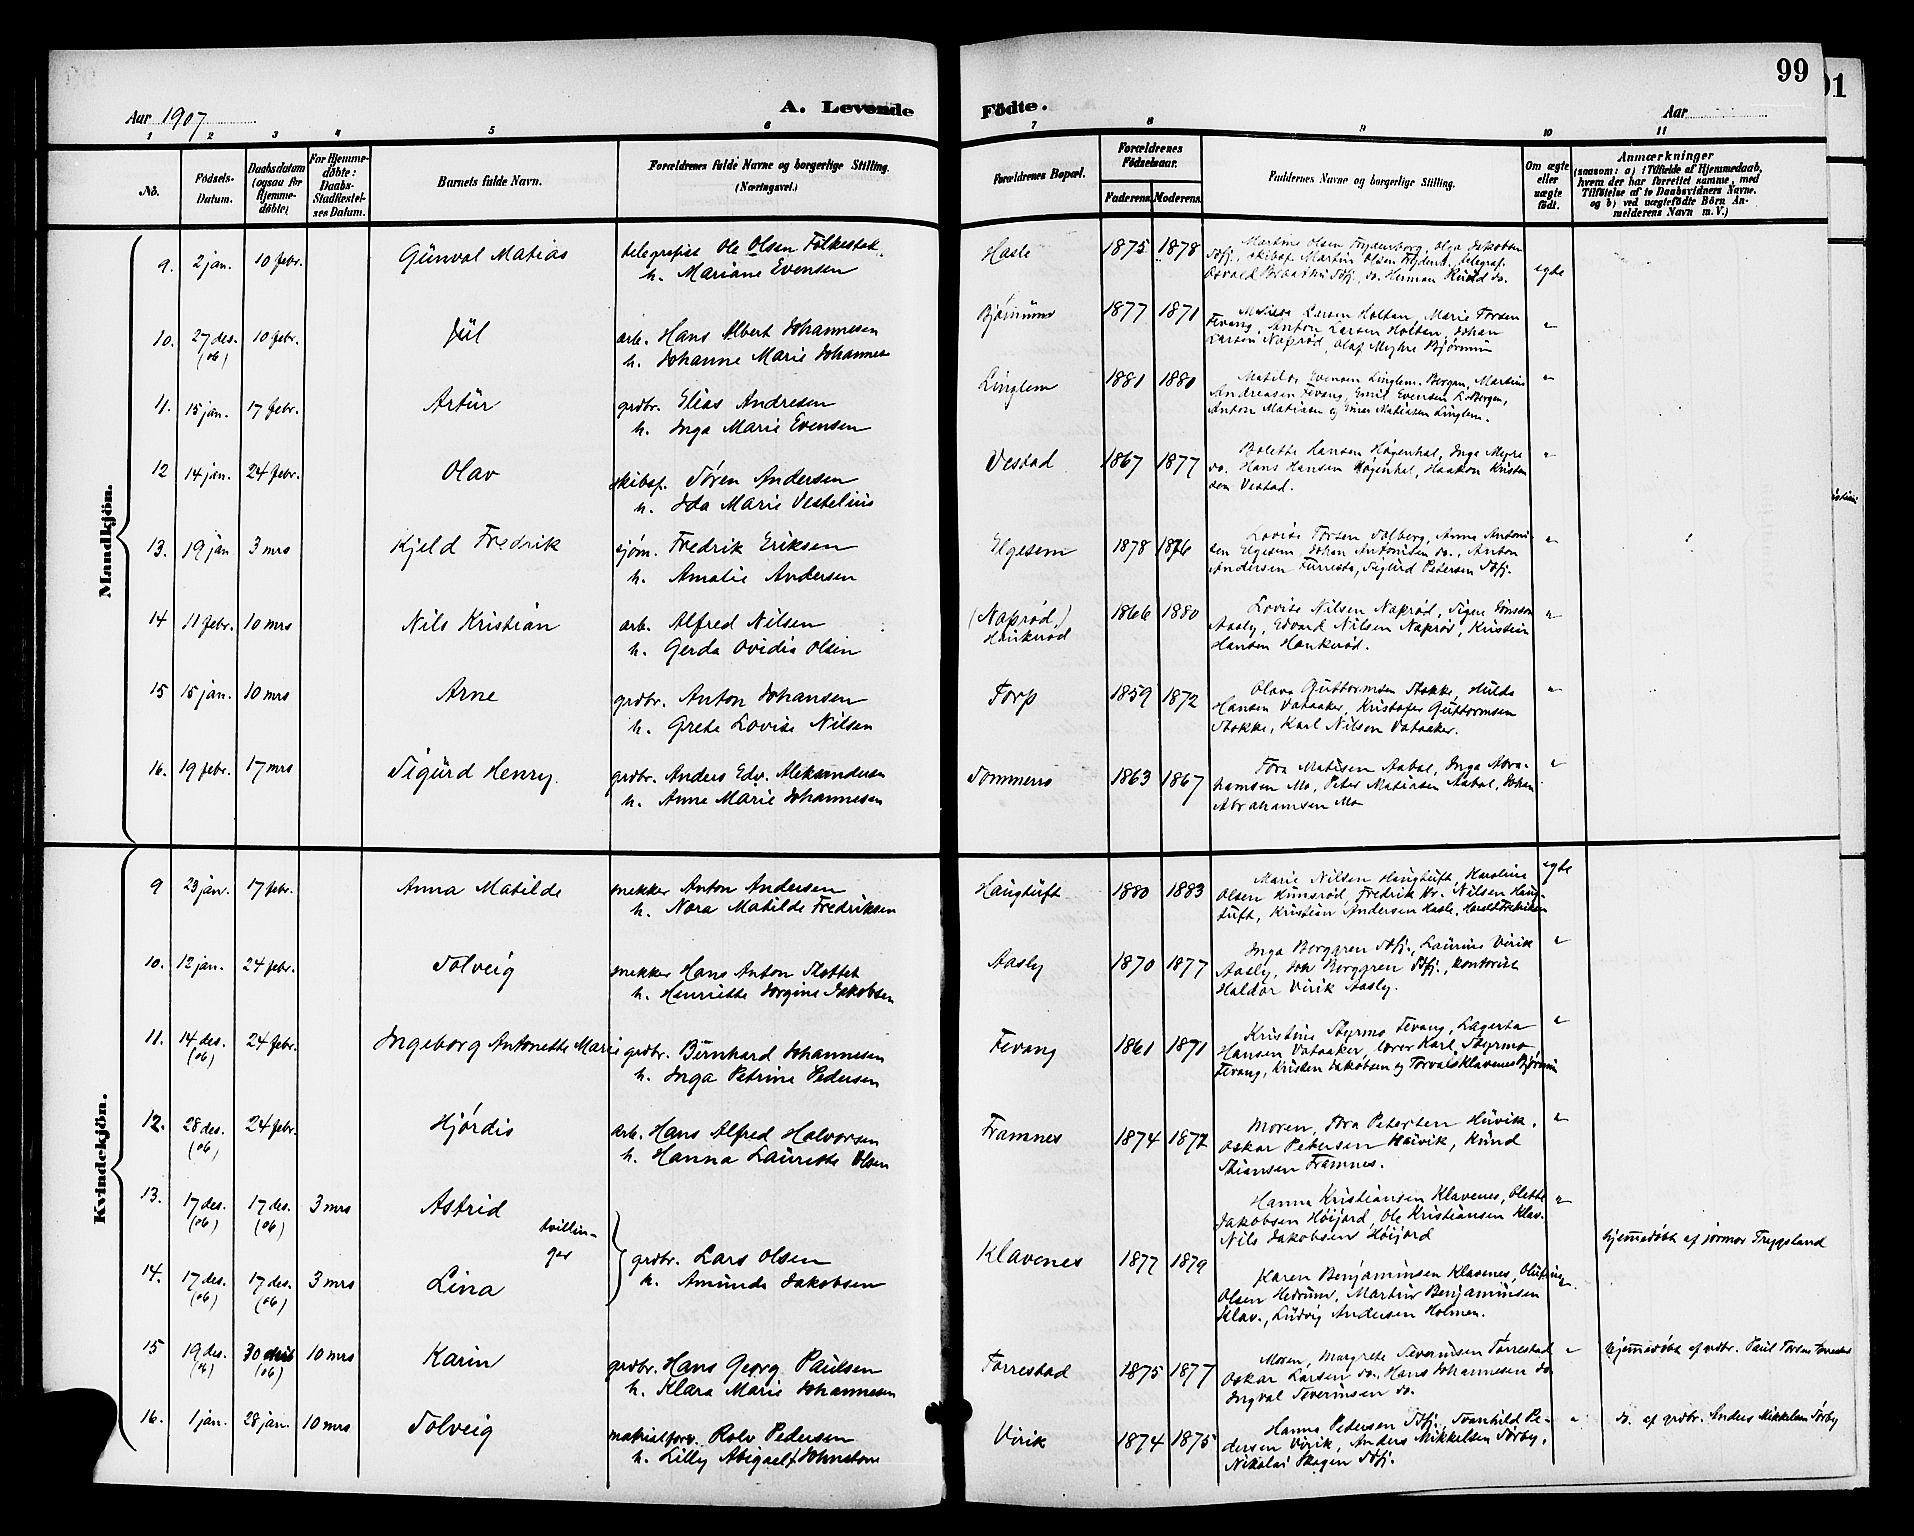 99
91
Aar 1907
A. Levende Födte.
Aar
1 2 3 4 5 6 7 8 9 10 11
No.
Födsels-Datum.
Daabsdatum (ogsaa for Hjemme-döbte)
For Hjemme-döbte: Daabs-Stadfæstelses Datum.
Barnets fulde Navn.
Forældrenes fulde Navne og borgerlige Stilling.
(Næringsvei.)
Forældrenes Bopæl.
Forældrenes Födselsaar.
Faderens. Moderens.
Faddernes Navne og borgerlige Stilling.
Om ægte eller uægte födt.
Anmærkninger
(saasom: a) i Tilfælde af Hjemmedaab,
hvem der har forrettet samme, med
Tilföielse af to Daabsvidners Navne.
og b) ved uægtefödte Börn An-
melderens Navn m. V.)
Mandkjön.
9. 2 jan. 10 febr. Gunval Matias telegrafist Ole Olsen Folkestak
h. Mariane Evensen
Hasle 1875 1878 Martine Olsen Frydenborg, Olga Jakobsen
Sdfj., skibsf. Martin Olsen Frydenb., telegraf.
Osvald Sdfj., do. Herman Ruud do. egte
10. 27 des. (06) 10 febr. Jul arb. Hans Albert Johannesen
h. Johanne Marie Johannese
Bjørnum 1877 1871 Larsen Holtan, Marie Torsen
Fevang, Anton Larsen Holtan, Johan
Larsen Naprød, Olaf Myhre Bjørnum "
11. 15 jan. 17 febr. Artur grdbr. Elias Andresen
h. Inga Marie Evensen
Linglem 1881 1880 Matilde Evensen Linglem. Bergan, Martin
Andreasen Fevang, Emil Evensen L. Bergan,
Anton Matiasen og Einar Matiasen Linglem. "
12 14 jan. 24 febr. Olav skibsf. Søren Andersen
h. Ida Marie Vestelius
Vestad 1867 1877 Bolette Hansen Høgenhal, Inga Myre
do. Hans Hansen Høgenhal, Haakon Kristen
sen Vestad. "
13. 19 jan 3 mrs Kjeld Fredrik sjøm. Fredrik Eriksen
h. Amalie Andersen
Elgesem 1878 1876 Lovise Torsen Solberg, Anna Antoni-
sen Elgesem, Johan Antonisen do., Anton
Andersen Furresta, Sigurd Petersen Sdfj. "
14 11 febr. 10 mrs Nils Kristian arb. Alfred Nilsen
h. Gerda Ovidia Olsen
(Naprød,)
Haukerød 1866 1880 Lovise Nilsen Naprød, Signe
Aasly, Edvard Nilsen Naprød, Kristian
Hansen Haukerød. "
15 15 jan. 10 mrs Arne grdbr. Anton Johansen
h. Grete Lovise Nilsen
Torp 1859 1872 Olava Guttormsen Stokke, Hulda
Hansen Vataaker, Kristofer Guttormsen
Stokke, Karl Nilsen Vataaker. "
16. 19 febr. 17 mrs Sigurd Henry. grdbr. Anders Edv. Aleksandersen
h. Anne Marie Johannesen
Sommerro 1863 1867 Tora Matisen Aabol, Inga Abra-
hamsen Mo, Peter Matiasen Aabol, Johan
Abrahamsen Mo "
Kvindekjön.
9 23 jan. 17 febr. Anna Matilde snekker Anton Andersen
h. Nora Matilde Fredriksen
Haugtuft 1880 1883 Marie Nilsen Haugtuft, Karoline
Olsen Hunsrød, Fredrik Kr. Nilsen Haug-
tuft, Kristian Andersen Hasle, Harald Fredriksen egte
10. 12 jan. 24 febr. Solveig snekker Hans Anton Slottet
h. Henriette Jorgine Jakobsen
Aasly 1870 1877 Inga Berggren Sdfj., Laurine Virik
Aasly, Joh Berggren Sdfj., kontorist
Haldor Virik Aasly. "
11. 14 des. (06) 24 febr. Ingeborg Antonette Marie grdbr. Bernhard Johannesen
h. Inga Petrine Pedersen
Fevang 1861 1871 Kristine Styrmo Fevang, Lagerta
Hansen Vataaker, lærer Karl Styrmo
Fevang, Kristen Jakobsen og Torvald Klavenes Bjørnum "
12. 28 des. (06) 24 febr. Hjørdis arb. Hans Alfred Halvorsen
h. Hanna Laurette Olsen
Framnes 1874 1872 Moren, Tora Petersen Huvik.
Oskar Petersen Huvik, Knud
Stiansen Framnes. "
13. 17 des. (06) 17 des. (06) 3 mrs Astrid
tvillin-
ger
grdbr. Lars Olsen
h. Amunda Jakobsen
Klavenes 1877 1879 Hanna Kristiansen Klavenes, Olette
Jakobsen Høijord, Ole Kristiansen Klav.
Nils Jakobsen Høijord "
hjemmedøbt af jormor Trygsland
14. 17 des. (06) 17 des. (06) 3 mrs Lina
Karen Benjaminsen Klavenes, Olufine
Olsen Hedrum, Martin Benjaminsen
Klav., Ludvig Andersen Holmen. "
15 19 des. (06) 30 des (06) 10 mrs Karin grdbr. Hans Georg Paulsen
h. Klara Marie Johannesen
Torrestad 1875 1877 Moren, Margrete Severinsen Torrestad
Oskar Larsen do. Hans Johannesen do.
Ingval Severinsen do. "
hjemmedøbt af grdbr. Paul Torsen Torrestad
16. 1 jan. 28 jan. 10 mrs Solveig matrialforv. Rolv Pedersen
h. Lilly Abigael Johnstone
Virik 1874 1875 Hanna Pedersen Sdfj., Svanhild Pe-
dersen Virik, Anders Mikkelsen Sørby,
Nikolai Skagen Sdfj. "
do. af grdbr. Anders Mikkelsen Sørby